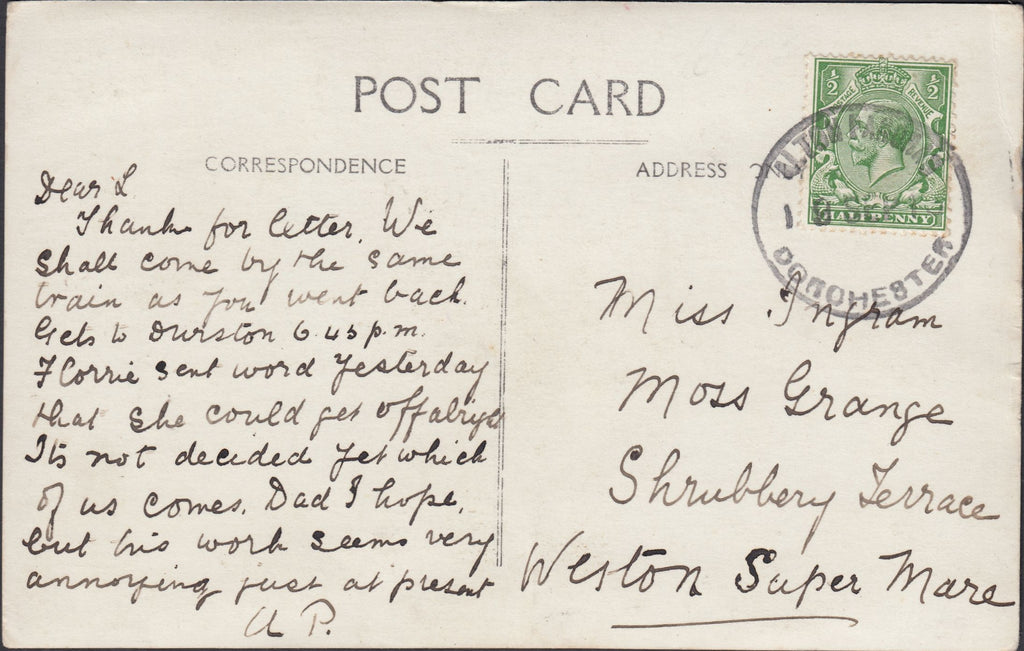 POST CARD
CORRESPONDENCE
Dear L
Thanks for letter. We
shall come by the same
train as you went back.
Gets to Durston 6.45 p.m.
Florrie sent word yesterday
that she could get off alright
Its not decided yet which
of us comes. Dad I hope,
but his work seems very
annoying just at present
A P.
ADDRESS
½ ½
POSTAGE REVENUE
HALFPENNY
DORCHESTER
Miss Ingram
Moss Grange
Shrubbery Terrace
Weston Super Mare